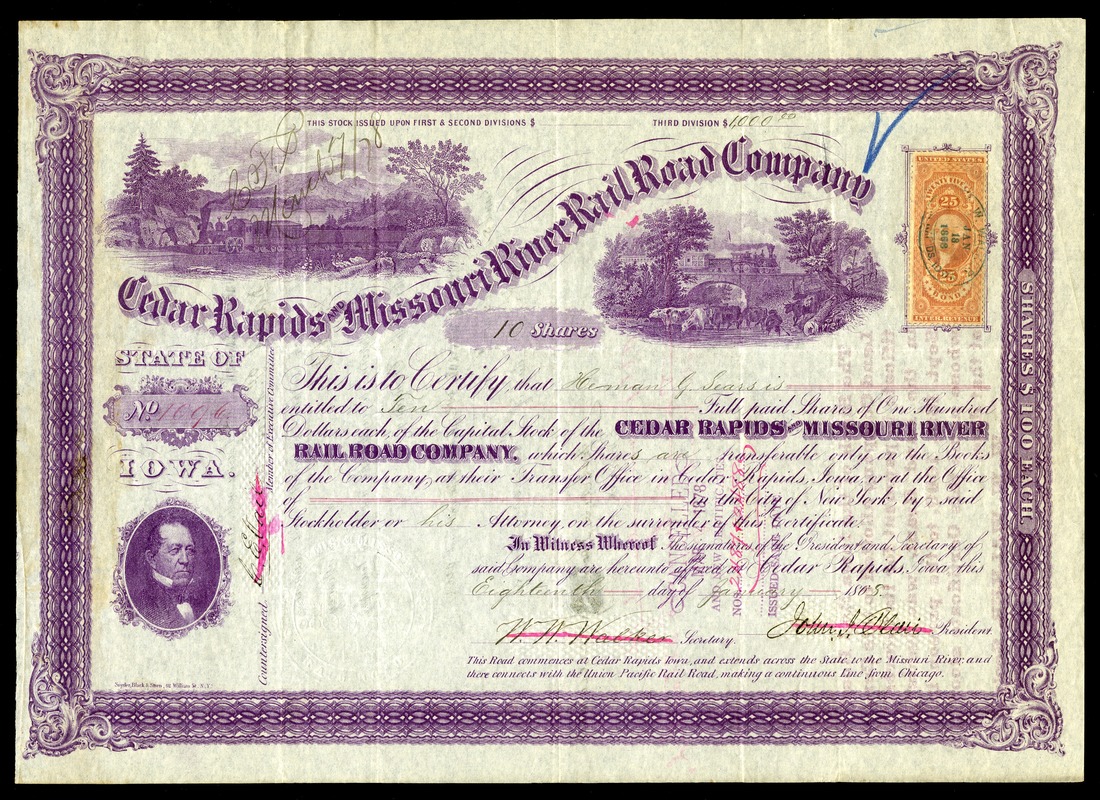 THIS STOCK ISSUED UPON FIRST & SECOND DIVISIONS $ THIRD DIVISION $1,000.00
March 7/78
Cedar Rapids and Missouri River Rail Road Company
UNITED STATES
25
25
BOND
INTER. REVENUE
SHARES $100 EACH
10 Shares
STATE OF
No 1696
IOWA.
This is to Certify that Heman G. Sears is
entitled to Ten Full paid Shares of One Hundred
Dollars each, of the Capital Stock of the CEDAR RAPIDS AND MISSOURI RIVER
RAIL ROAD COMPANY, which Shares are transferable only on the Books
of the Company, at their Transfer Office in Cedar Rapids, Iowa, or at the Office
of in the City of New York, by said
Stockholder or his Attorney, on the surrender of this Certificate.
In Witness Whereof The signatures of the President and Secretary of
said Company are hereunto affixed at Cedar Rapids, Iowa, this
Eighteenth day of January 1865.
W. W. Walker Secretary. John I. Blair President.
This Road commences at Cedar Rapids Iowa, and extends across the State to the Missouri River, and
there connects with the Union Pacific Rail Road, making a continuous Line from Chicago.
Countersigned. Member of Executive Committee
CANCELLED
1878
Snyder, Black & Sturn, 92 William St. N.Y.